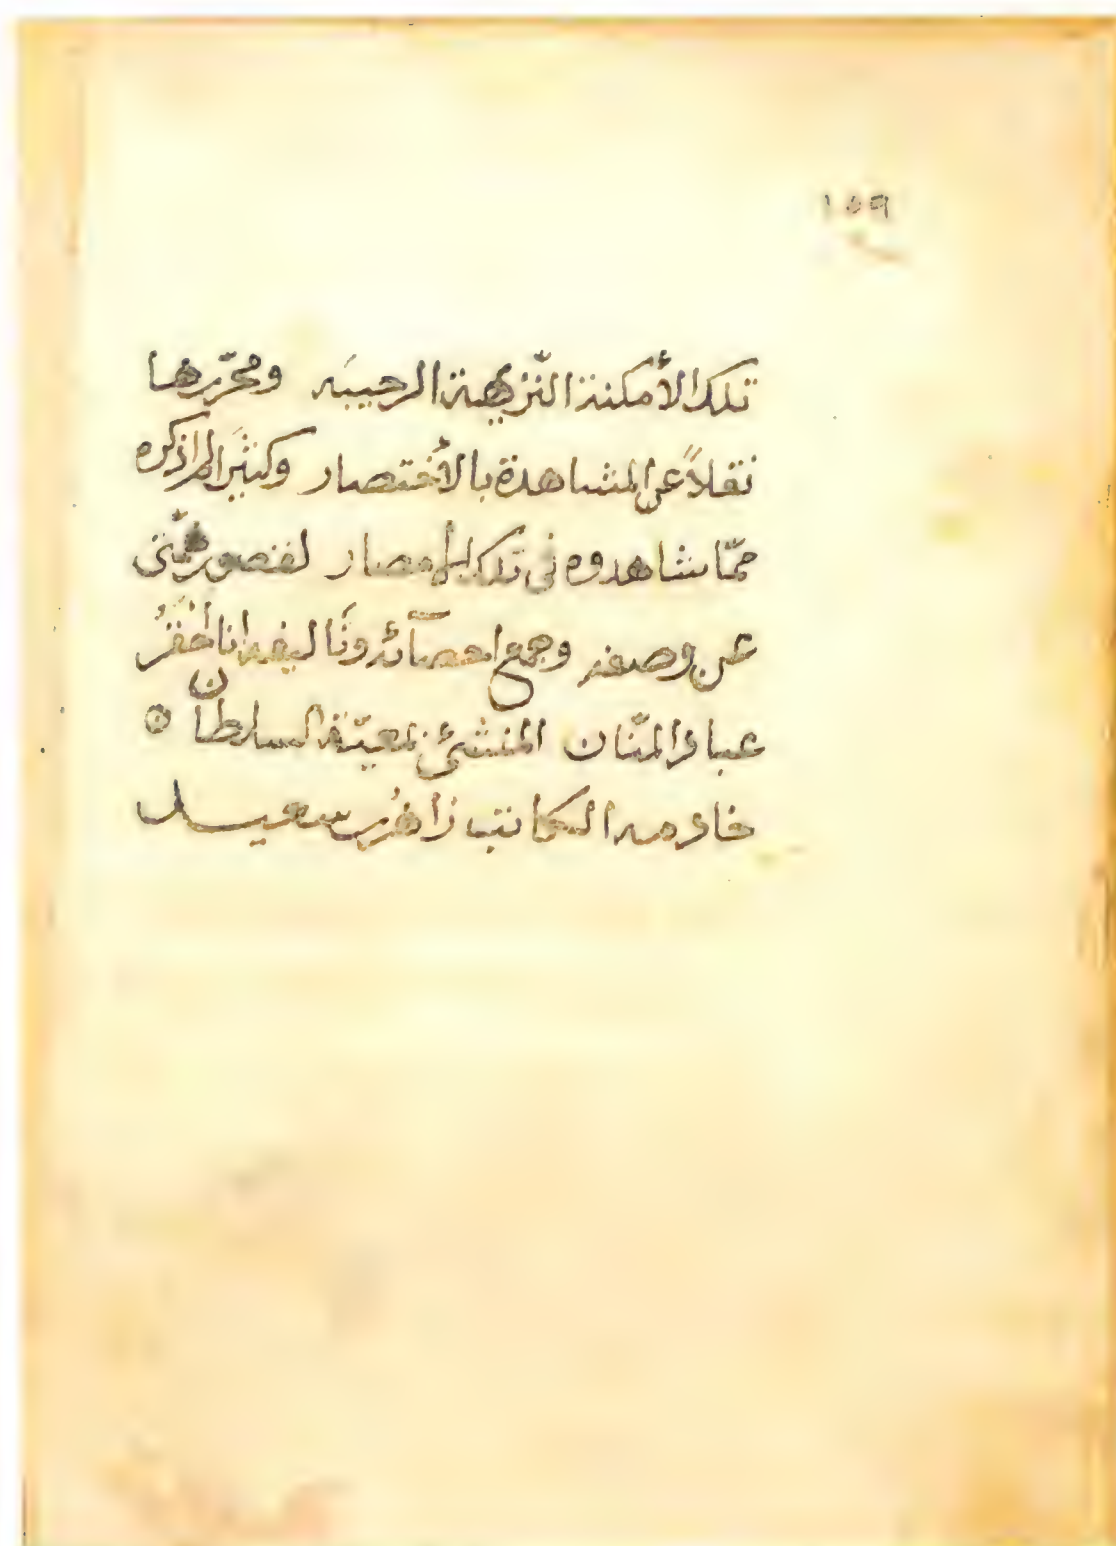 ١٥٩
تلك الأمكنة النّزهة الرحيبَه ومحرّرها
نقلاً عن المشاهدة بالأختصار وكثيَراً لم اذكره
ممّا شاهدوه في تلك الأمصار لقصور همّتى
عن وصفه وجمع احصآئه وتَاليفه انا أحْقَرُ
عباد المنّان المنشئ بمعيّة السلطان
خادمه الكاتب زاهر بن سعيد